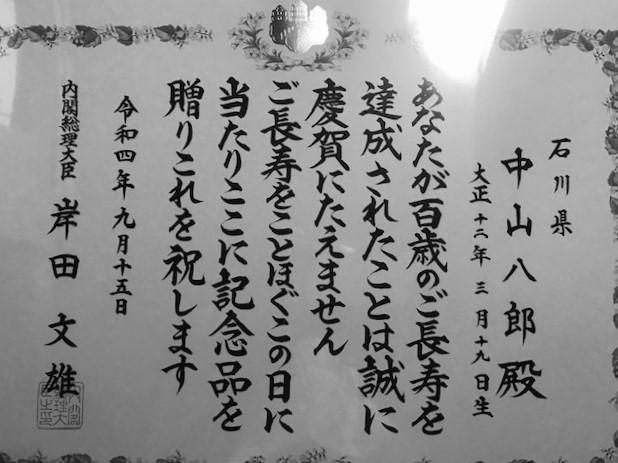 石川県
中山八郎殿
大正十二年三月十九日生
あなたが百歳のご長寿を
達成されたことは誠に
慶賀にたえません
ご長寿をことほぐこの日に
当たりここに記念品を
贈りこれを祝します
令和四年九月十五日
内閣総理大臣 岸田文雄